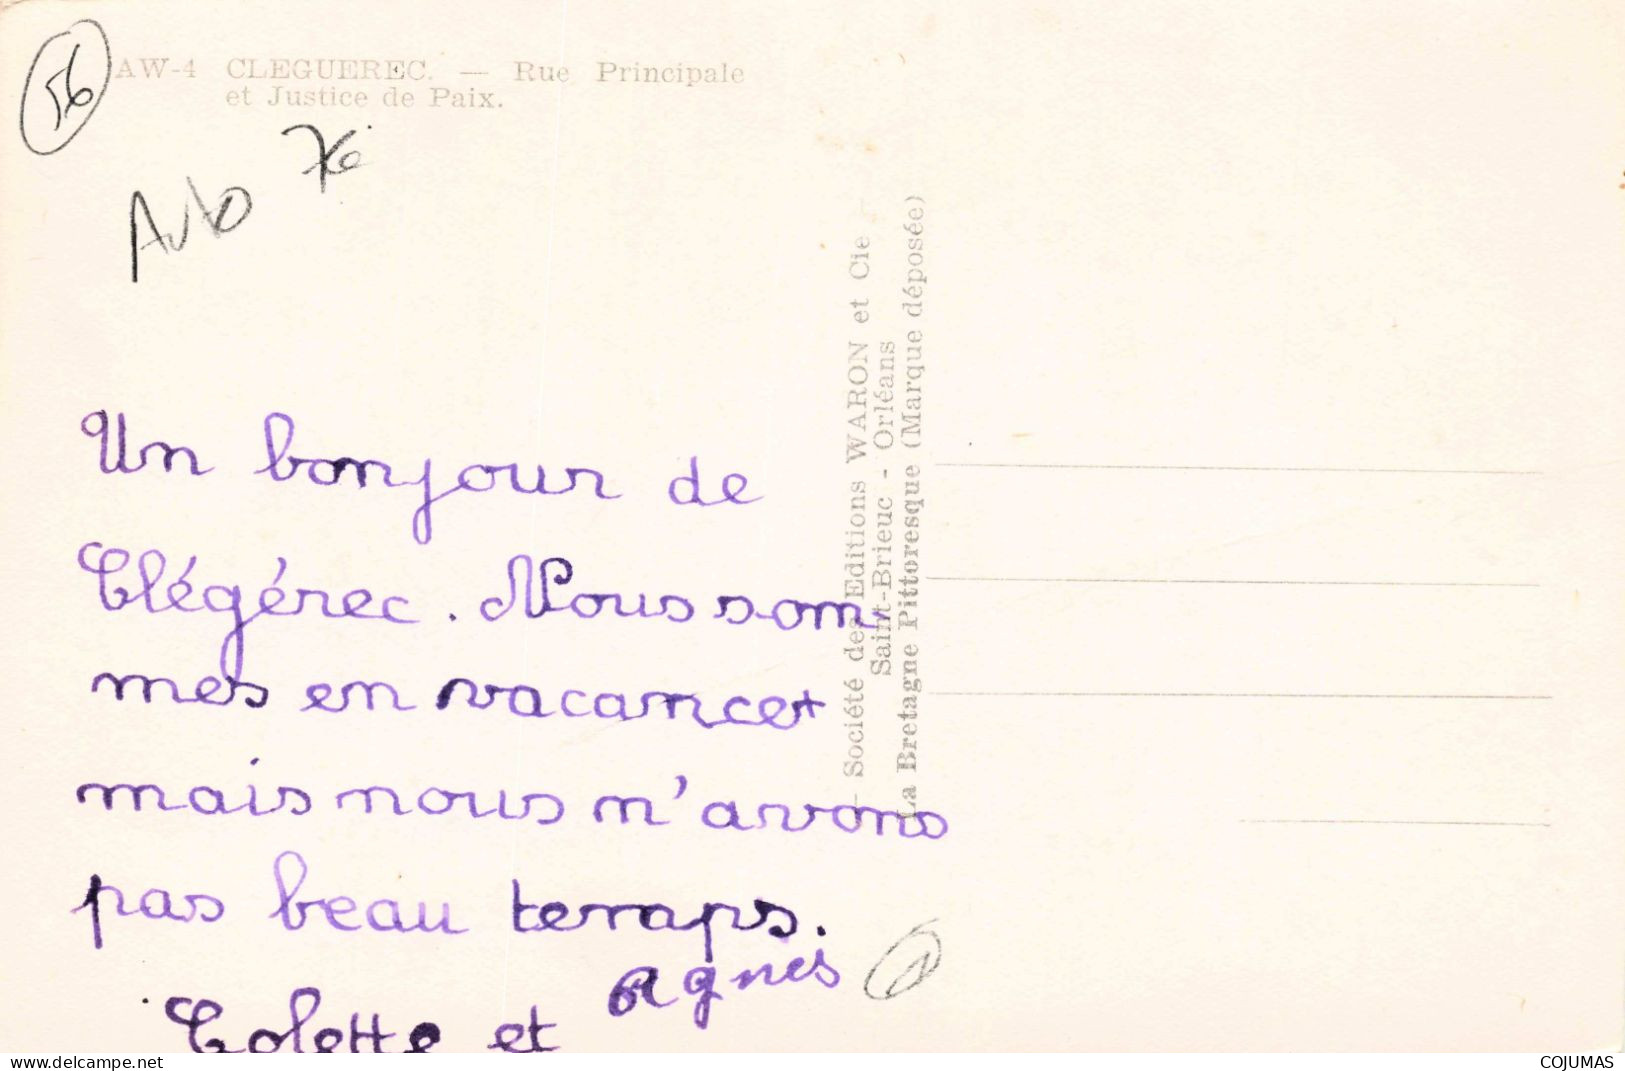 56
AW-4 CLEGUEREC. — Rue Principale
et Justice de Paix.
Un bonjour de
Clégérec. Nous som
mes en vacances
mais nous n'avons
pas beau temps.
Colette et Agnès
— Société des Editions WARON et Cie —
Saint-Brieuc - Orléans
La Bretagne Pittoresque (Marque déposée)
https://www.delcampe.net
COJUMAS